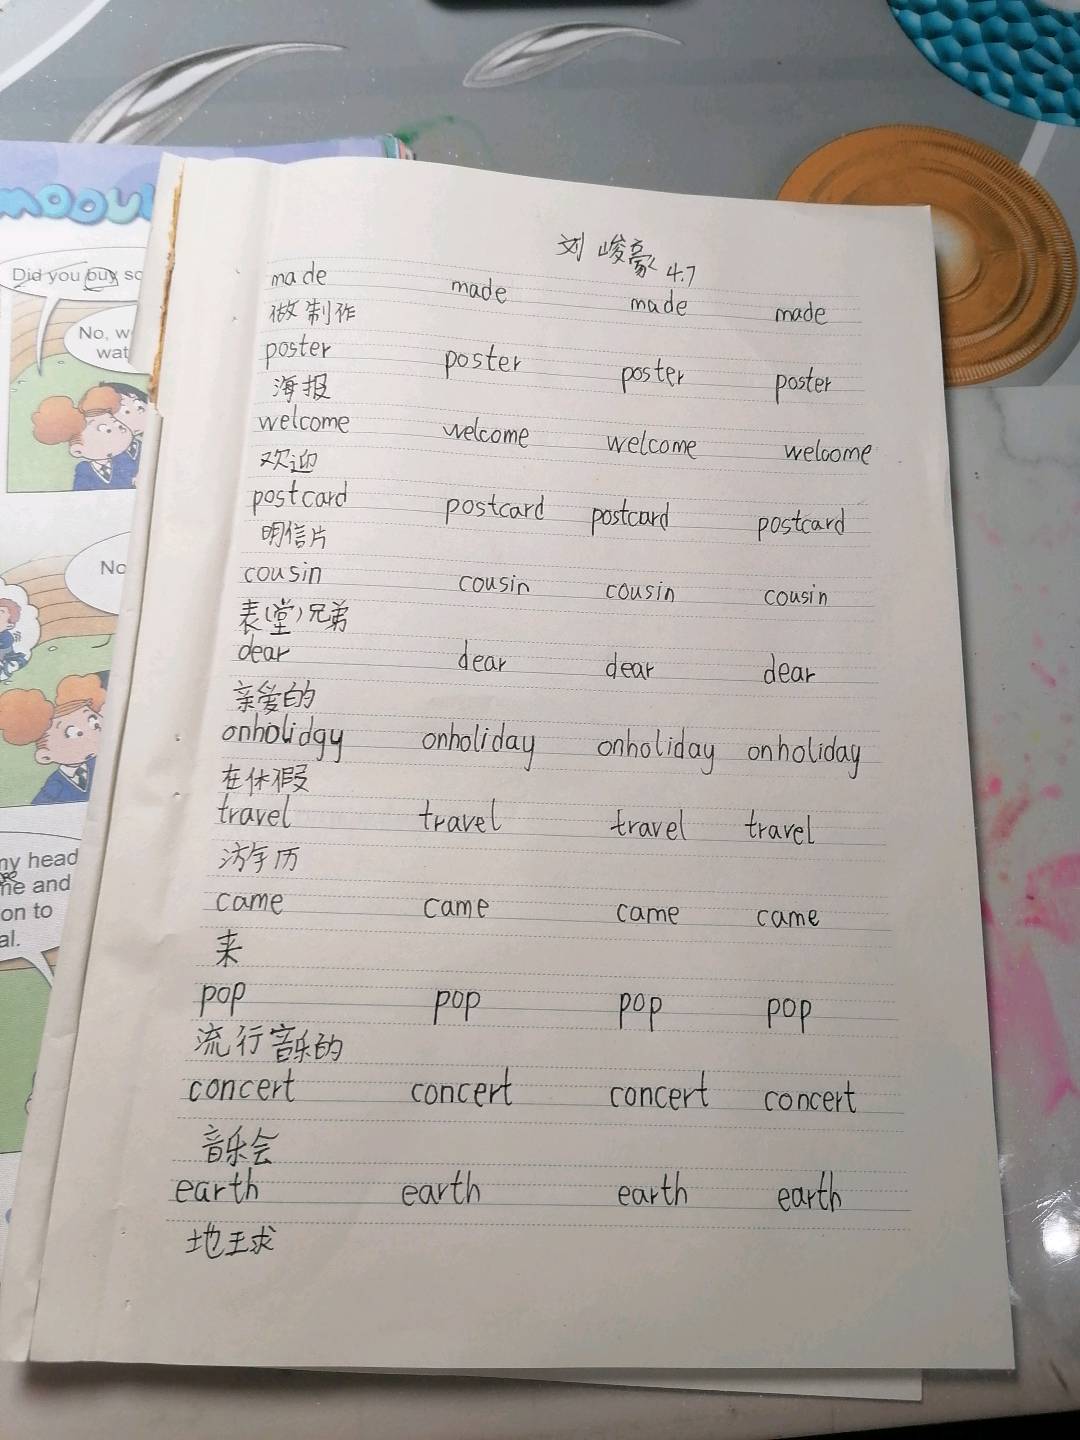 moou
Did you buy so
No, w
wat
No
my head
me and
on to
al.
刘峻豪 4.7
made made made made
做 制作
poster poster poster poster
海报
welcome welcome welcome welcome
欢迎
postcard postcard postcard postcard
明信片
cousin cousin cousin cousin
表(堂)兄弟
dear dear dear dear
亲爱的
onholidgy onholiday onholiday onholiday
在休假
travel travel travel travel
游历
came came came came
来
pop pop pop pop
流行音乐的
concert concert concert concert
音乐会
earth earth earth earth
地球